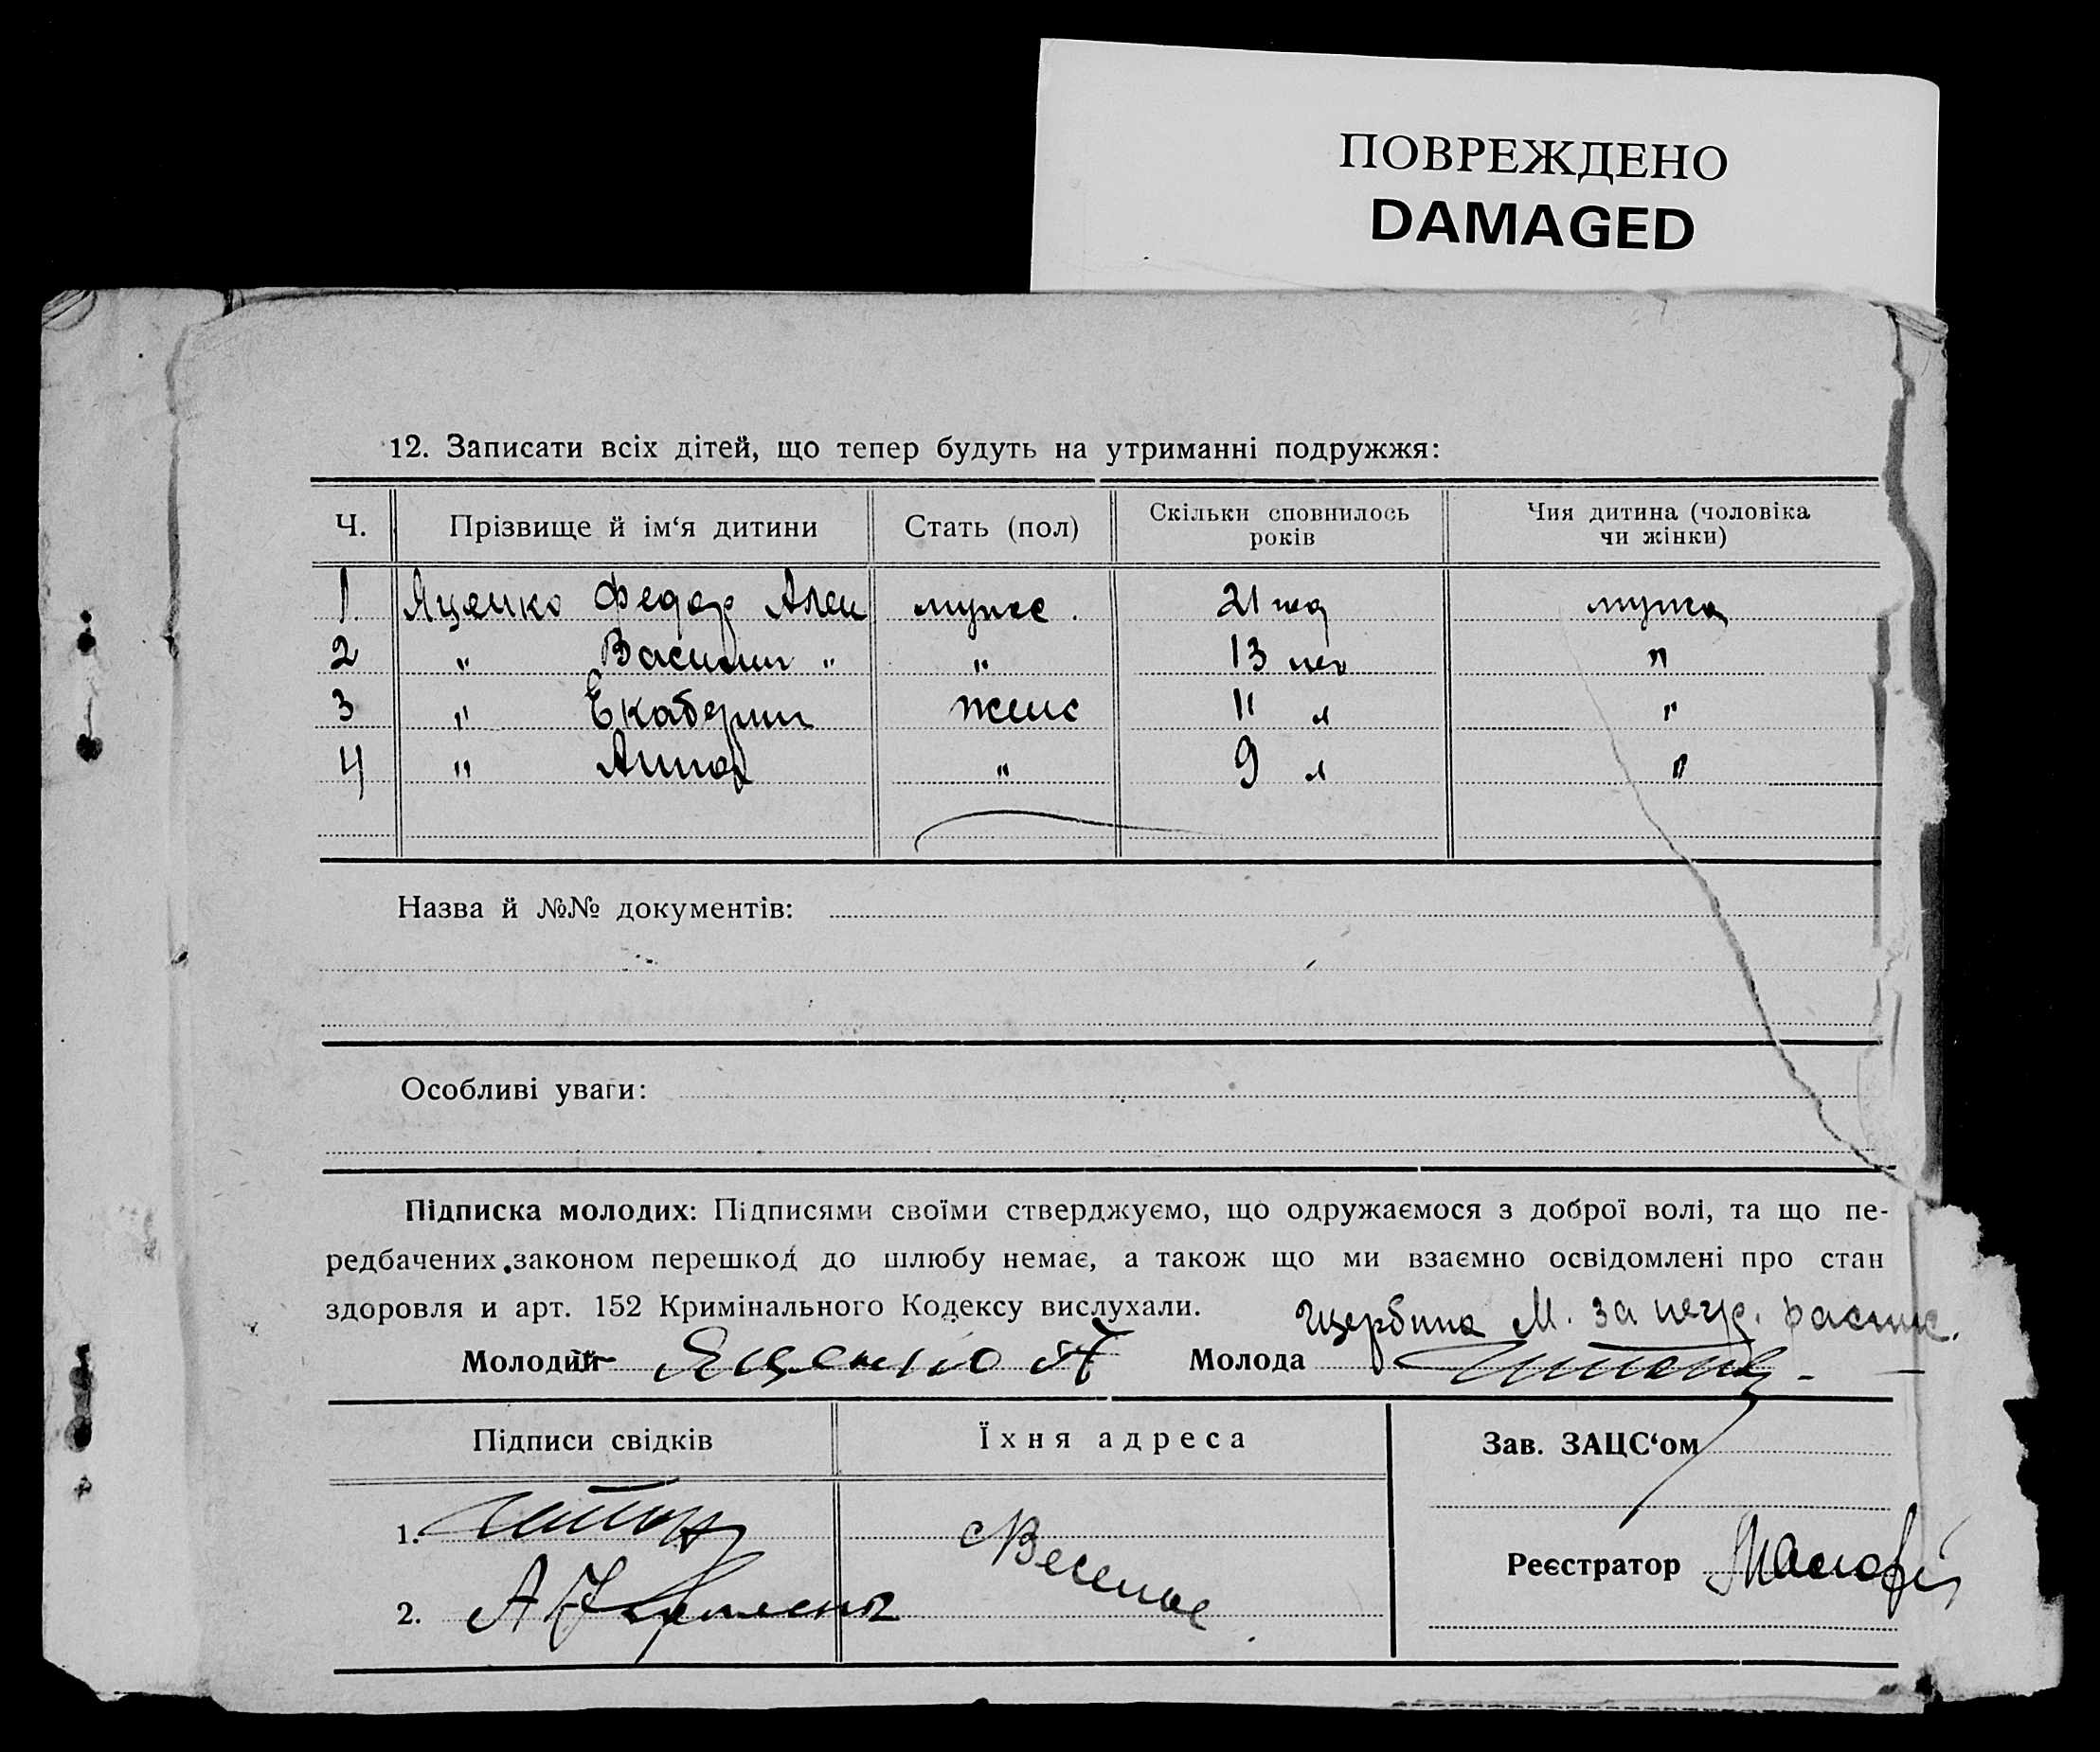 ПОВРЕЖДЕНО
DAMAGED
12. Записати всіх дітей, що тепер будуть на утриманні подружжя:
Ч. Прізвище й ім‘я дитини Стать (пол) Скільки сповнилось років Чия дитина (чоловіка чи жінки)
1. Яценко Федор Алек мужс. 21 год мужа
2 " Василий " " 13 лет "
3 " Екатерин женс 11 л "
4 " Анна " 9 л "
Назва й №№ документів:
Особливі уваги:
Підписка молодих: Підписями своїми стверджуємо, що одружаємося з доброї волі, та що пе-
редбачених законом перешкод до шлюбу немає, а також що ми взаємно освідомлені про стан
здоровля и арт. 152 Кримінального Кодексу вислухали.
Щербина М. за негр. распис.
Молодий Яценко А Молода
Підписи свідків Їхня адреса Зав. ЗАЦС‘ом
1.
Веселое
Реєстратор
2. А